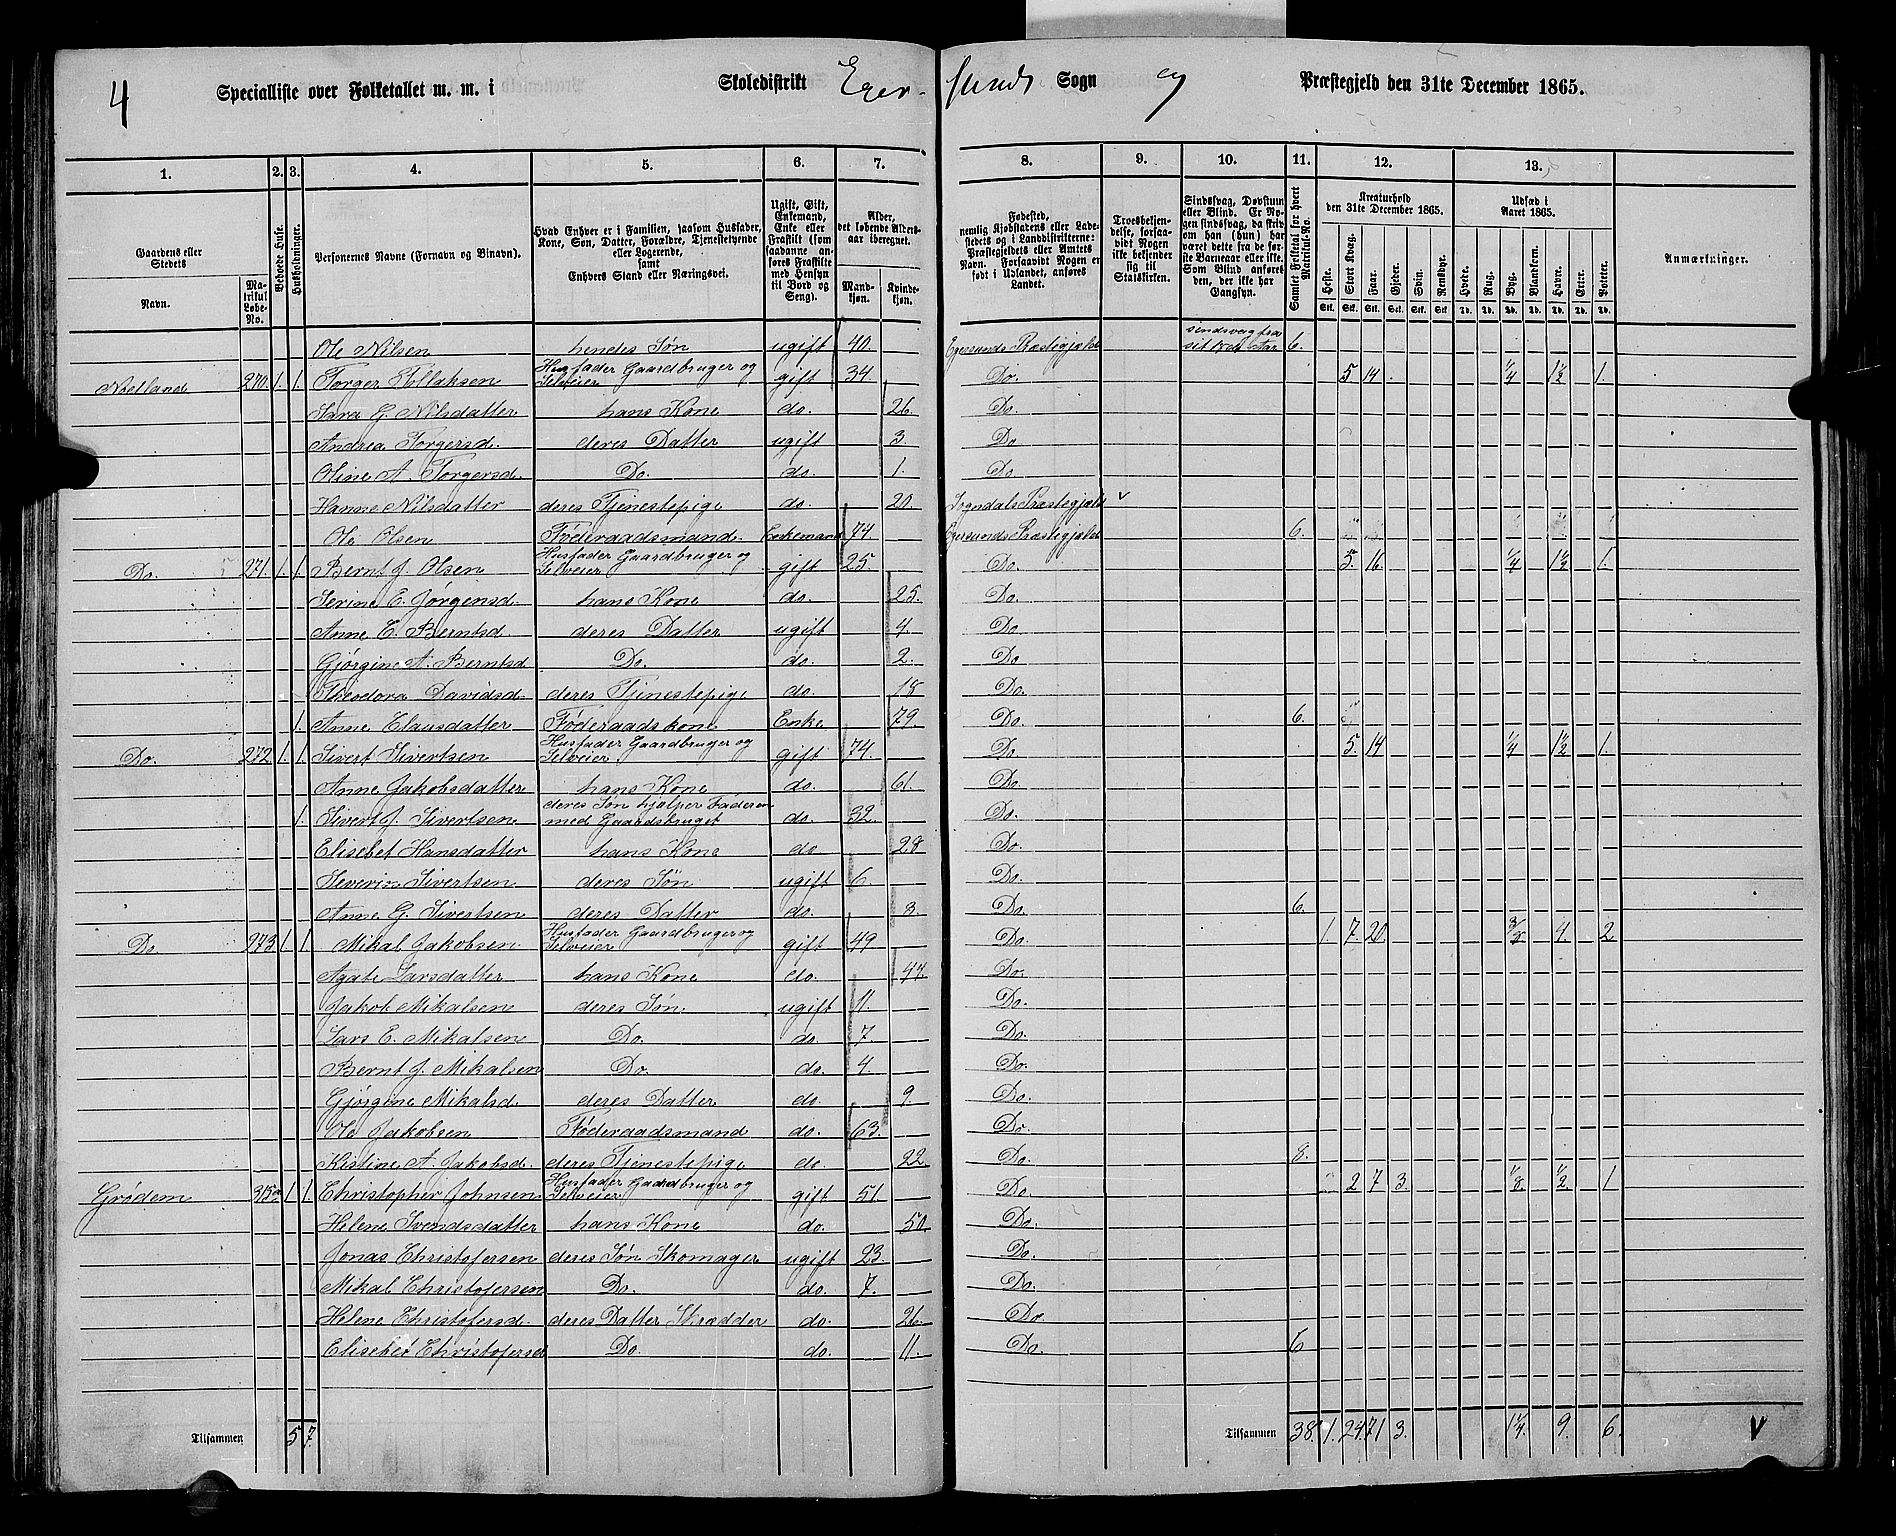 4 Specialliste over Folketallet m. m. i Skoledistrikt Eger- sunds Sogn og Præstegjeld den 31te December 1865.
1. 2. 3. 4. 5. 6. 7. 8. 9. 10. 11. 12. 13.
Gaardens eller Stedets
Navn.
Matrikul Løbe-No.
Beboede Huse.
Husholdninger.
Personernes Navne (Fornavn og Binavn).
Hvad Enhver er i Familien, saasom Husfader, Kone, Søn, Datter, Forældre, Tjenestetyende eller Logerende,
samt
Enhvers Stand eller Næringsvei.
Ugift, Gift, Enkemand, Enke eller Fraskilt (som saadanne anføres Fraskilte med Hensyn til Bord og Seng).
Alder, det løbende Aldersaar iberegnet.
Mandkjøn.
Kvindekjøn.
Fødested,
nemlig Kjøbstadens eller Ladestedets og i Landdistrikterne: Præstegjeldets eller Amtets Navn. Forsaavidt Nogen er født i Udlandet, anføres Landet.
Troesbekjendelse, forsaavidt Nogen ikke bekjender sig til Statskirken.
Sindssvag, Døvstum eller Blind. Er Nogen sindssvag, da skrives om han (hun) har været dette fra de første Barneaar eller ikke. Som Blind anføres den, der ikke har Gangsyn.
Samlet Folketal for hvert Matrikul-No.
Kreaturhold den 31te December 1865.
Heste. Stort Kvæg. Faar. Gjeder. Svin. Rensdyr.
Udsæd i Aaret 1865.
Hvede. Rug. Byg. Blandkorn. Havre. Erter. Poteter.
Anmærkninger.
Ole Nilsen hendes Søn ugift 40. Egersunds Præstegjæld 6.
Nodland 270. 1. 1. Torger Tollaksen Husfader Gaardbruger og Selveier gift 34. Do. 5 14. 1/4 1 1/2 1.
Sara G. Nilsdatter hans Kone do. 26. Do.
Andrea Torgersd. deres Datter ugift 3. Do
Oline A. Torgersd. Do. do. 1. Do
Hanne Nilsdatter deres Tjenestepige do. 20. Sogndals Præstegjæld
Ole Olsen Føderaadsmand. Enkemand 74. Egersunds Præstegjæld 6.
Do. 271. 1. 1. Bernt J. Olsen Husfader Gaardbruger og Selveier gift 25. Do. 5. 16. 1/4 1 1/2 1.
Serine E. Jørgensd. hans Kone do. 25. Do.
Anne E. Berntsd. deres Datter ugift 4. Do.
Gjørgine A. Berntsd Do. do. 2. Do.
Theodora Davidsd. deres Tjenestepige do. 15 Do.
1. Anne Clausdatter Føderaadskone Enke 79. Do. 6.
Do. 272 1. 1. Sivert Sivertsen Husfader Gaardbruger og Selveier gift 74. Do 5. 14 1/4 1 1/2 1.
Anne Jakobsdatter hans Kone do. 61. Do
1. Sivert J. Sivertsen deres Søn hjælper Faderen med Gaardsbruget do. 32. Do.
Elisebet Hansdatter hans Kone do 28 Do.
Severin Sivertsen deres Søn ugift 6. Do.
Anne G. Sivertsen deres Datter do. 3. Do. 6.
Do 273 1 1. Mikal Jakobsen Husfader Gaardbruger og Selveier gift 49 Do. 1. 7. 20. 4. 2
Agate Larsdatter hans Kone do. 44 Do.
Jakob Mikalsen deres Søn. ugift 11. Do.
Lars E. Mikalsen Do. do. 7. Do.
Bernt J. Mikalsen Do. do. 4. Do.
Gjørgine Mikalsd. deres Datter do. 9. Do.
Ole Jakobsen Føderaadsmand do. 63. Do.
Kistine A. Jakobsd. deres Tjenestepige do. 22. Do. 8.
Grødem 315a 1 1. Christopher Johnsen Husfader Gaardbruger og Selveier gift 51 Do. 2 7 3. 1/8 1/2 1
Helene Svendsdatter hans Kone do. 50. Do.
Jonas Christofersen deres Søn Skomager ugift 23. Do.
Mikal Christofersen Do. do. 7. Do.
Helene Christofersd. deres Datter Skrædder do. 26. Do
Elisebet Christofersd Do. do. 11. Do. 6
Tilsammen 5 7. Tilsammen 38. 1. 24. 71 3. 1 1/4. 9. 6. V